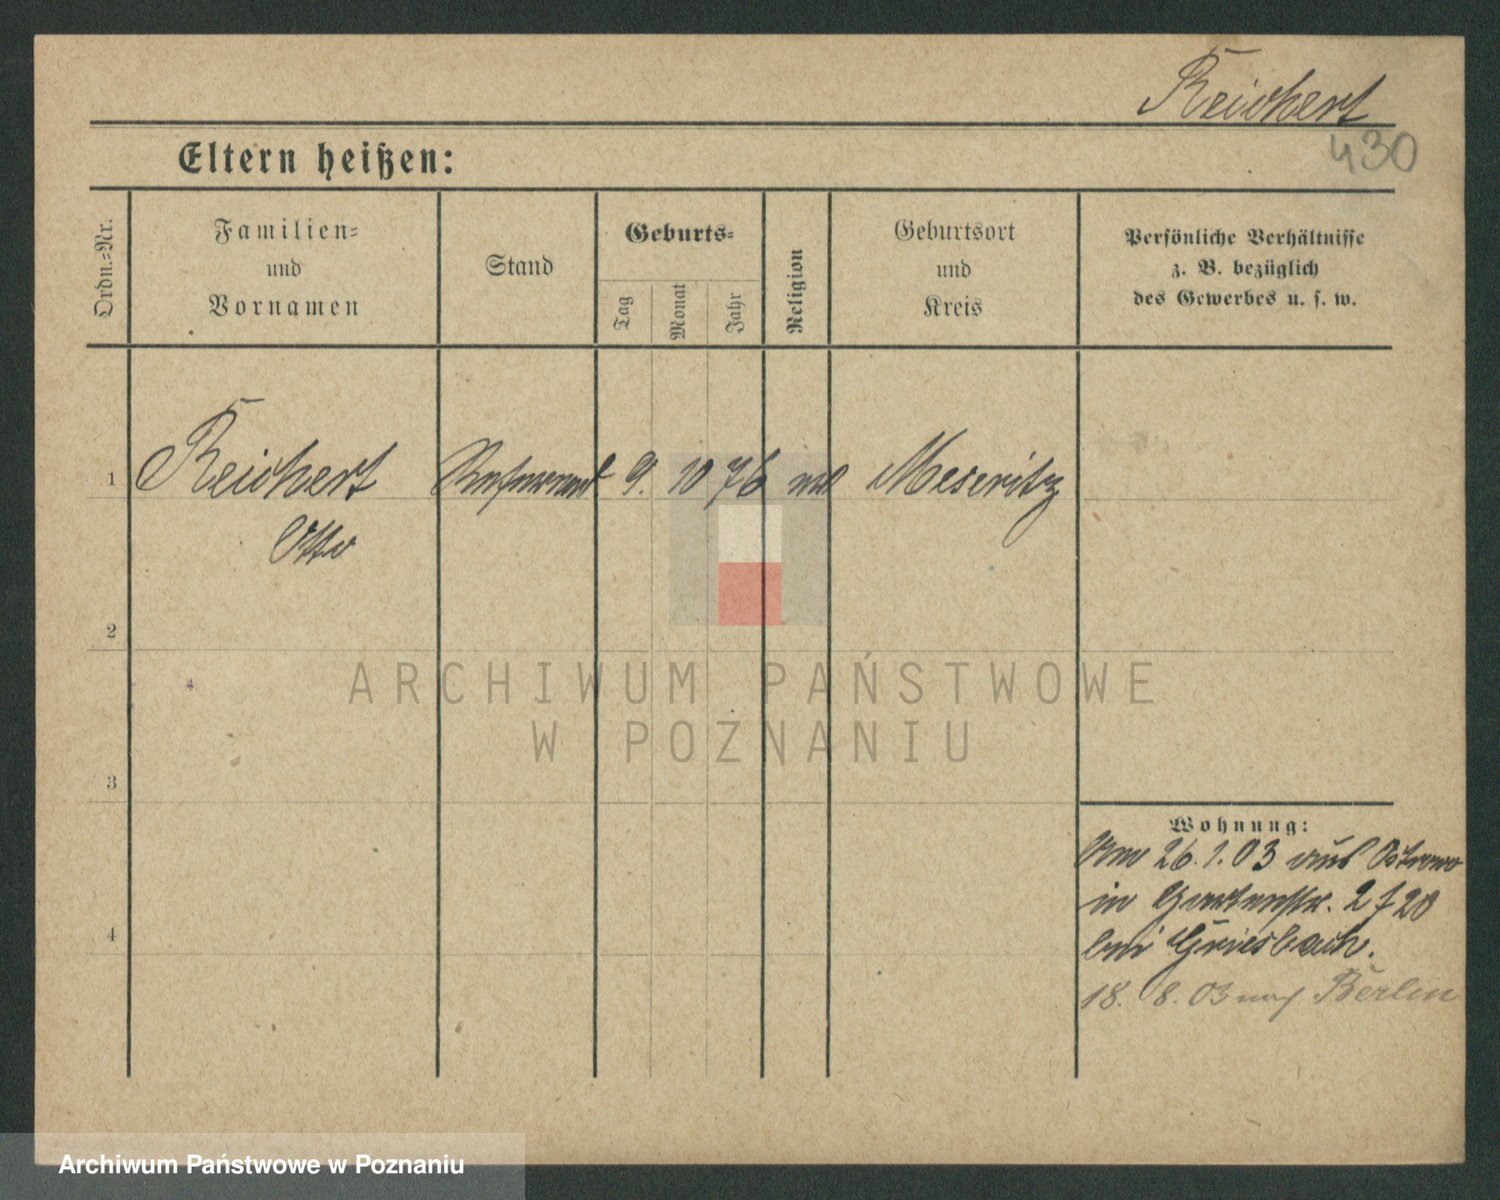 Reichert
430
Eltern heißen:
Ordn.=Nr.
Familien=
und
Vornamen
Stand
Geburts=
Tag
Monat
Jahr
Religion
Geburtsort
und
Kreis
Persönliche Verhältnisse
z. B. bezüglich
des Gewerbes u. s. w.
1 Reichert Referend 9. 10 76 Meseritz
Otto
2
3
4
ARCHIWUM PAŃSTWOWE
W POZNANIU
Wohnung:
Am 26.1.03 aus Ostrowo
in Gartenstr. 2
bei Griesbach.
18. 8. 03 nach Berlin
Archiwum Państwowe w Poznaniu